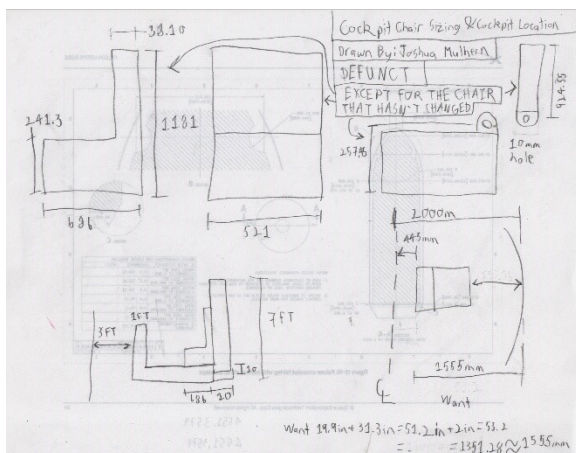 38.10
Cockpit Chair Sizing & Cockpit Location
Drawn By: Joshua Mulhern
DEFUNCT
EXCEPT FOR THE CHAIR
THAT HASN'T CHANGED
924.55
10mm
hole
241.3
1181
686
521
2000m
445mm
1555mm
Want
3FT
1FT
7FT
20
Want 19.9in+31.3in=51.2in+2in=53.2
=1351.28≈1555mm